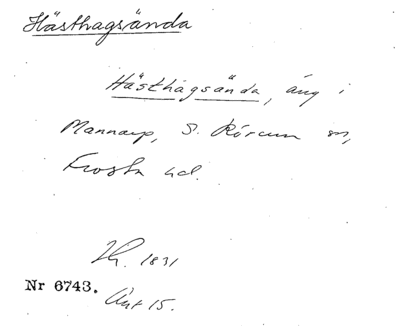 Hästhagsända
Hästhagsända, äng i
Mannarp, S. Rörum sn,
Frosta hd.
1831
Nr 6743.
Akt 15.